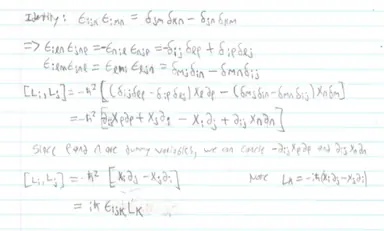 Identity: ε_ijk ε_imn = δ_jm δ_kn − δ_jn δ_km
=> ε_iln ε_jnp = −ε_nil ε_njp = −δ_ij δ_lp + δ_ip δ_lj
ε_ilm ε_jnl = ε_lmi ε_ljn = δ_mj δ_in − δ_mn δ_ij
[L_i, L_j] = −ħ² [(δ_ij δ_lp − δ_ip δ_lj) x_l ∂_p − (δ_mj δ_in − δ_mn δ_ij) x_n ∂_m]
= −ħ² [∂_ij x_p ∂_p + x_j ∂_i − x_i ∂_j + ∂_ij x_n ∂_n]
Since p and n are dummy variables, we can cancle −∂_ij x_p ∂_p and ∂_ij x_n ∂_n
[L_i, L_j] = −ħ² [x_i ∂_j − x_j ∂_i] Note L_k = −iħ(x_i ∂_j − x_j ∂_i)
= iħ ε_ijk L_k